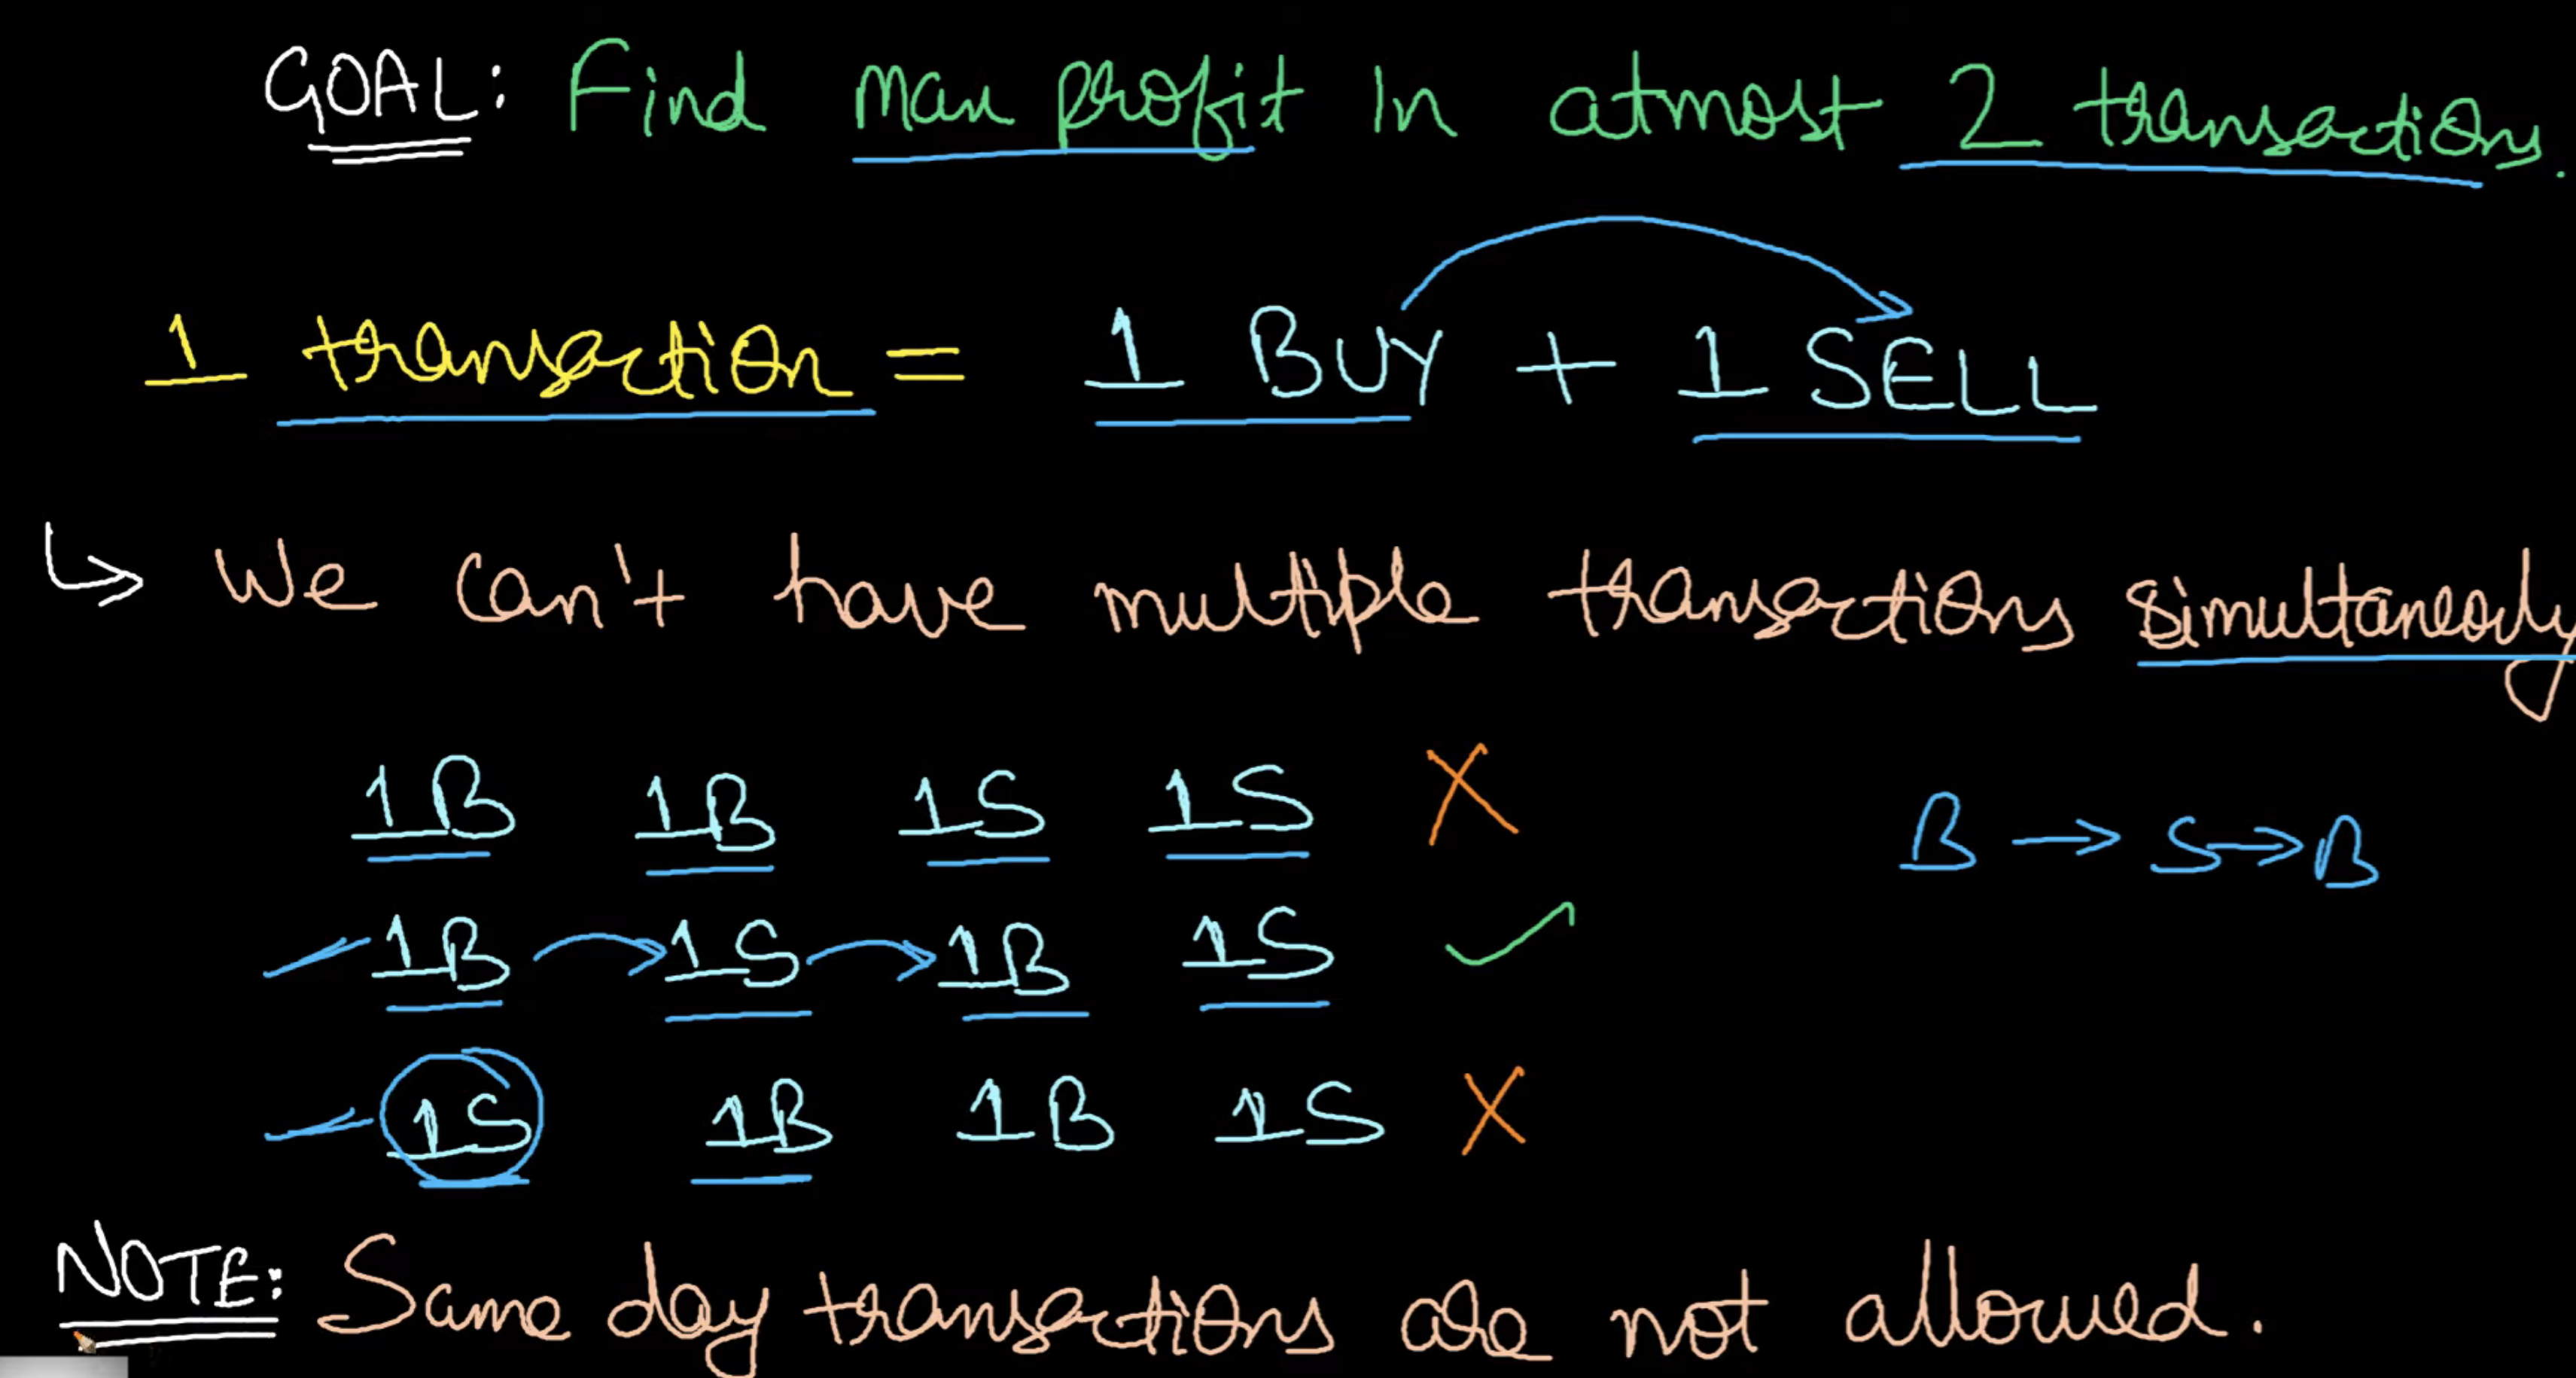 GOAL: Find max profit in atmost 2 transactions.
1 transaction = 1 BUY + 1 SELL
↳ We can't have multiple transactions simultaneously
1B 1B 1S 1S X
B → S → B
1B → 1S → 1B 1S ✓
1S 1B 1B 1S X
NOTE: Same day transactions are not allowed.